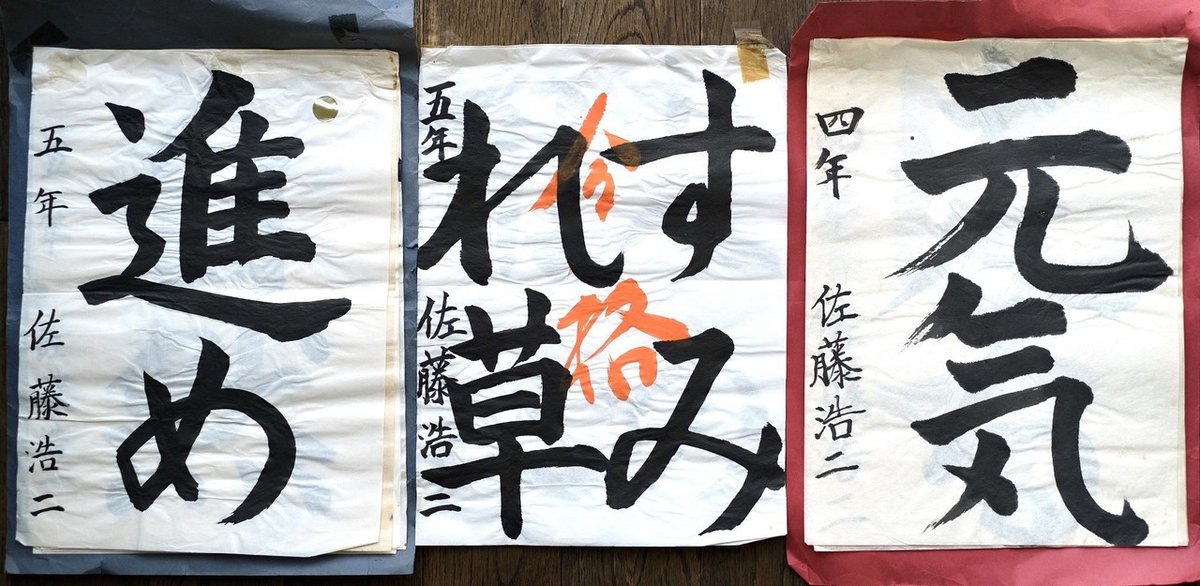 進め
五年 佐藤浩二
すみ
れ草
合格
五年 佐藤浩二
元気
四年 佐藤浩二